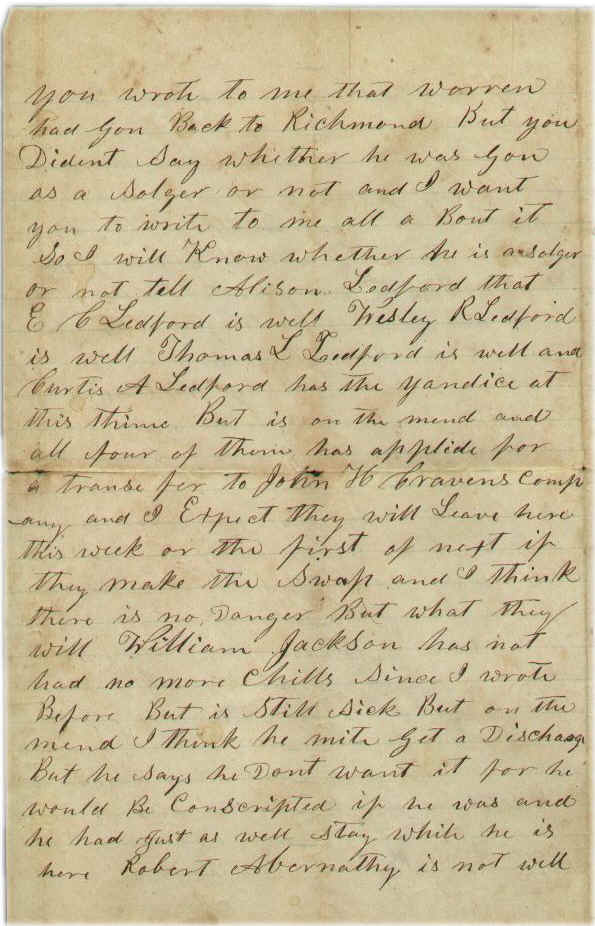 you wrote to me that worren
had gon Back to Richmond But you
Dident Say whether he was gon
as a Solger or not and I want
you to write to me all a Bout it
So I will Know whether he is a solger
or not tell Alison Ledford that
E C Ledford is well Wesley R Ledford
is well Thomas L Ledford is well and
Curtis A Ledford has the yandice at
this thime But is on the mend and
all four of them has applide for
a transe fer to John H Cravens comp
any and I Expect they will Leave here
this week or the first of next if
they make the Swap and I think
there is no Danger But what they
will William Jackson has not
had no more Chills Since I wrote
Before But is Still Sick But on the
mend I think he mite get a Discharg
But he says he Dont want it for he
would Be Conscripted if he was and
he had just as well Stay while he is
here Robert Abernathy is not well